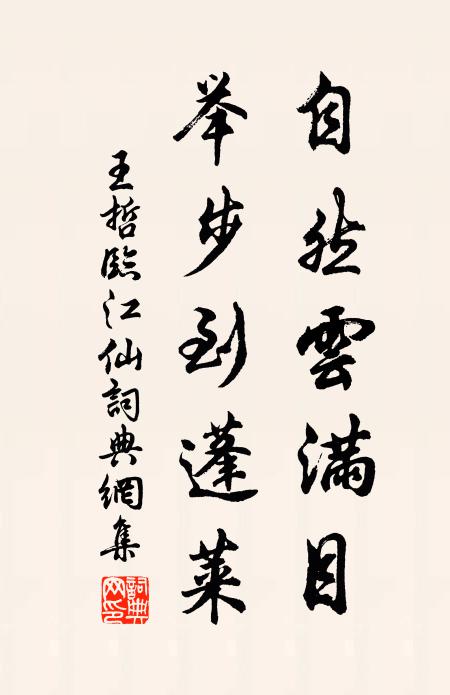 自然雲滿目
举步到蓬萊
王哲臨江仙詞典網集
詞典網印